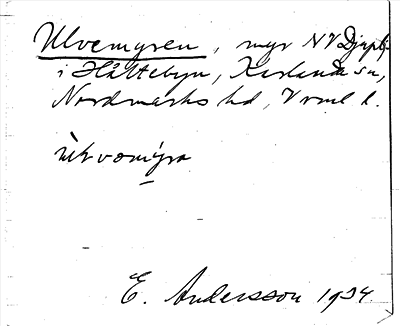 Ulvemyren, myr NV Djupt.
i Håltebyn, Karlanda sn,
Nordmarks hd, Vrml l.
E. Andersson 1934.